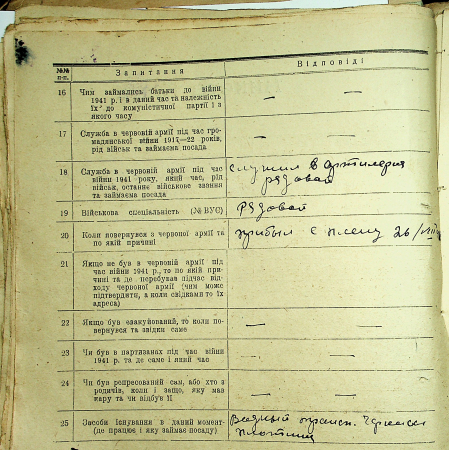 №№ п-п. Запитання Відповіді
16 Чим займались батьки до війни
1941 р. і в даний час та належність
їх до комуністичної партії і з
якого часу
— —
17 Служба в червоній армії під час гро-
мадянської війни 1917—22 років,
рід військ та займаема посада
— —
18 Служба в червоній армії під час
війни 1941 року, який час, рід
військ, останне військове звання
та займаема посада
Служил в артилерия
рядовой
19 Військова спеціальність (№ ВУС)
рядовой
20 Коли повернувся з червоної армії та
по якій причині
прибыл с плену 26/VIII
21 Якщо не був в червоній армії під
час війни 1941 р., то по якій при-
чині та де перебував підчас від-
ходу червоної армії (чим може
підтвердити, а коли свідками то їх
адреса)
22 Якщо був евакуйований, то коли по-
вернувся та звідки саме
— —
23 Чи був в партизанах під час війни
1941 р. та де саме і який час
— —
24 Чи був репресований сам, або хто з
родичів, коли і защо, яку мав
кару та чи відбув її
— —
25 Засоби існування в даний момент-
(де працює і яку займає посаду)
Водный
плотник